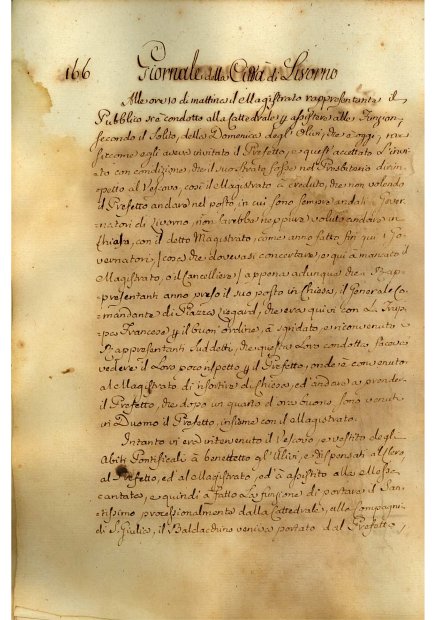 166 Giornale della Città di Livorno
Alle ore 10 di mattina il Magistrato rappresentante il
Pubblico si è condotto alla Cattedrale p assistere alle Funzioni
secondo il Solito, della Domenica degl' Ulivi, che è oggi,
siccome egli aveva invitato il Prefetto, e quest' accettato l'invi
to con condizione, che il suo strato fosse nel Presbiterio dirim
petto al Vescovo, così il Magistrato à creduto, che non volendo
il Prefetto andare nel posto in cui sono sempre andati i Gover
natori di Livorno, non sarebbe neppure voluto andare in
Chiesa, con il detto Magistrato, come anno fatto fin qui i Go
vernatori, [cosa che dovevasi concertare, e qui à mancato il
Magistrato, o il Cancelliere] appena adunque che i Rap
presentanti anno preso il suo posto in Chiesa, il Generale Co
mandante di Piazza, che era quivi con La Trup
pa Francese p il buon ordine, à sgridato, e riconvenuto i
Rappresentanti Suddetti, che questa Loro condotta faceva
vedere il Loro poco rispetto p il Prefetto, onde è convenuto
al Magistrato di sortire di Chiesa, ed andare a prender
il Prefetto, che dopo un quarto d'ora buono sono venuti
in Duomo il Prefetto, insieme con il Magistrato.
Intanto vi era intervenuto il Vescovo, e vestito degli
Abiti Pontificali à benedetto gl' Ulivi, e dispensati al Clero,
al Prefetto, ed al Magistrato, ed à assistito alla Messa
cantata, e quindi à fatto La funzione di portare il San
tissimo processionalmente dalla Cattedrale, alla Compagnia
di S. Giulia, il Baldacchino veniva portato dal Prefetto,